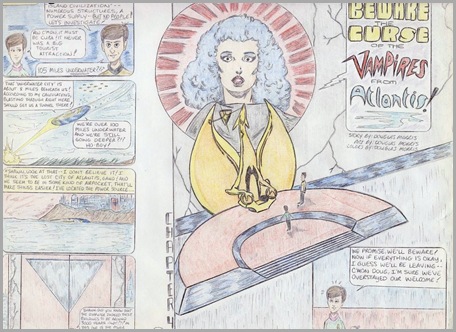 AND CIVILIZATION"--
NUMEROUS STRUCTURES, A
POWER SUPPLY-- BUT NO PEOPLE!
LET'S INVESTIGATE!
MUST
BE CUTE! IT NEVER
WAS A BIG
TOURIST
ATTRACTION!
185 MILES UNDERWATER!!?
THE UNDERWATER CITY IS
ABOUT MILES BENEATH US!
ACCORDING TO MY CALCULATIONS,
BLASTING THROUGH RIGHT HERE
SHOULD GET US A THING THERE!
WE'RE OVER 100
MILES UNDERWATER
AND WE'RE STILL
GOING DEEPER!!!
HO-BOY!
LOOK AT THAT--I DON'T BELIEVE IT! I
THINK IT'S THE LOST CITY OF ATLANTIS, GANG! AND
WE SEEM TO BE IN SOME KIND OF AIRPOCKET, THAT'LL
MAKE THINGS EASIER! I'VE LOCATED THE POWER SOURCE
BEWARE
THE
CURSE
OF THE
VAMPIRES
FROM
Atlantis!
STORY BY: DOUGLAS MORRIS
ART BY: DOUGLAS MORRIS
COLORS BY: DOUGLAS MORRIS
CHAPTER
WE PROMISE, WE'LL BEWARE!
NOW IF EVERYTHING IS OKAY,
I GUESS WE'LL BE LEAVING--
C'MON DOUG, I'M SURE WE'VE
OVERSTAYED OUR WELCOME!